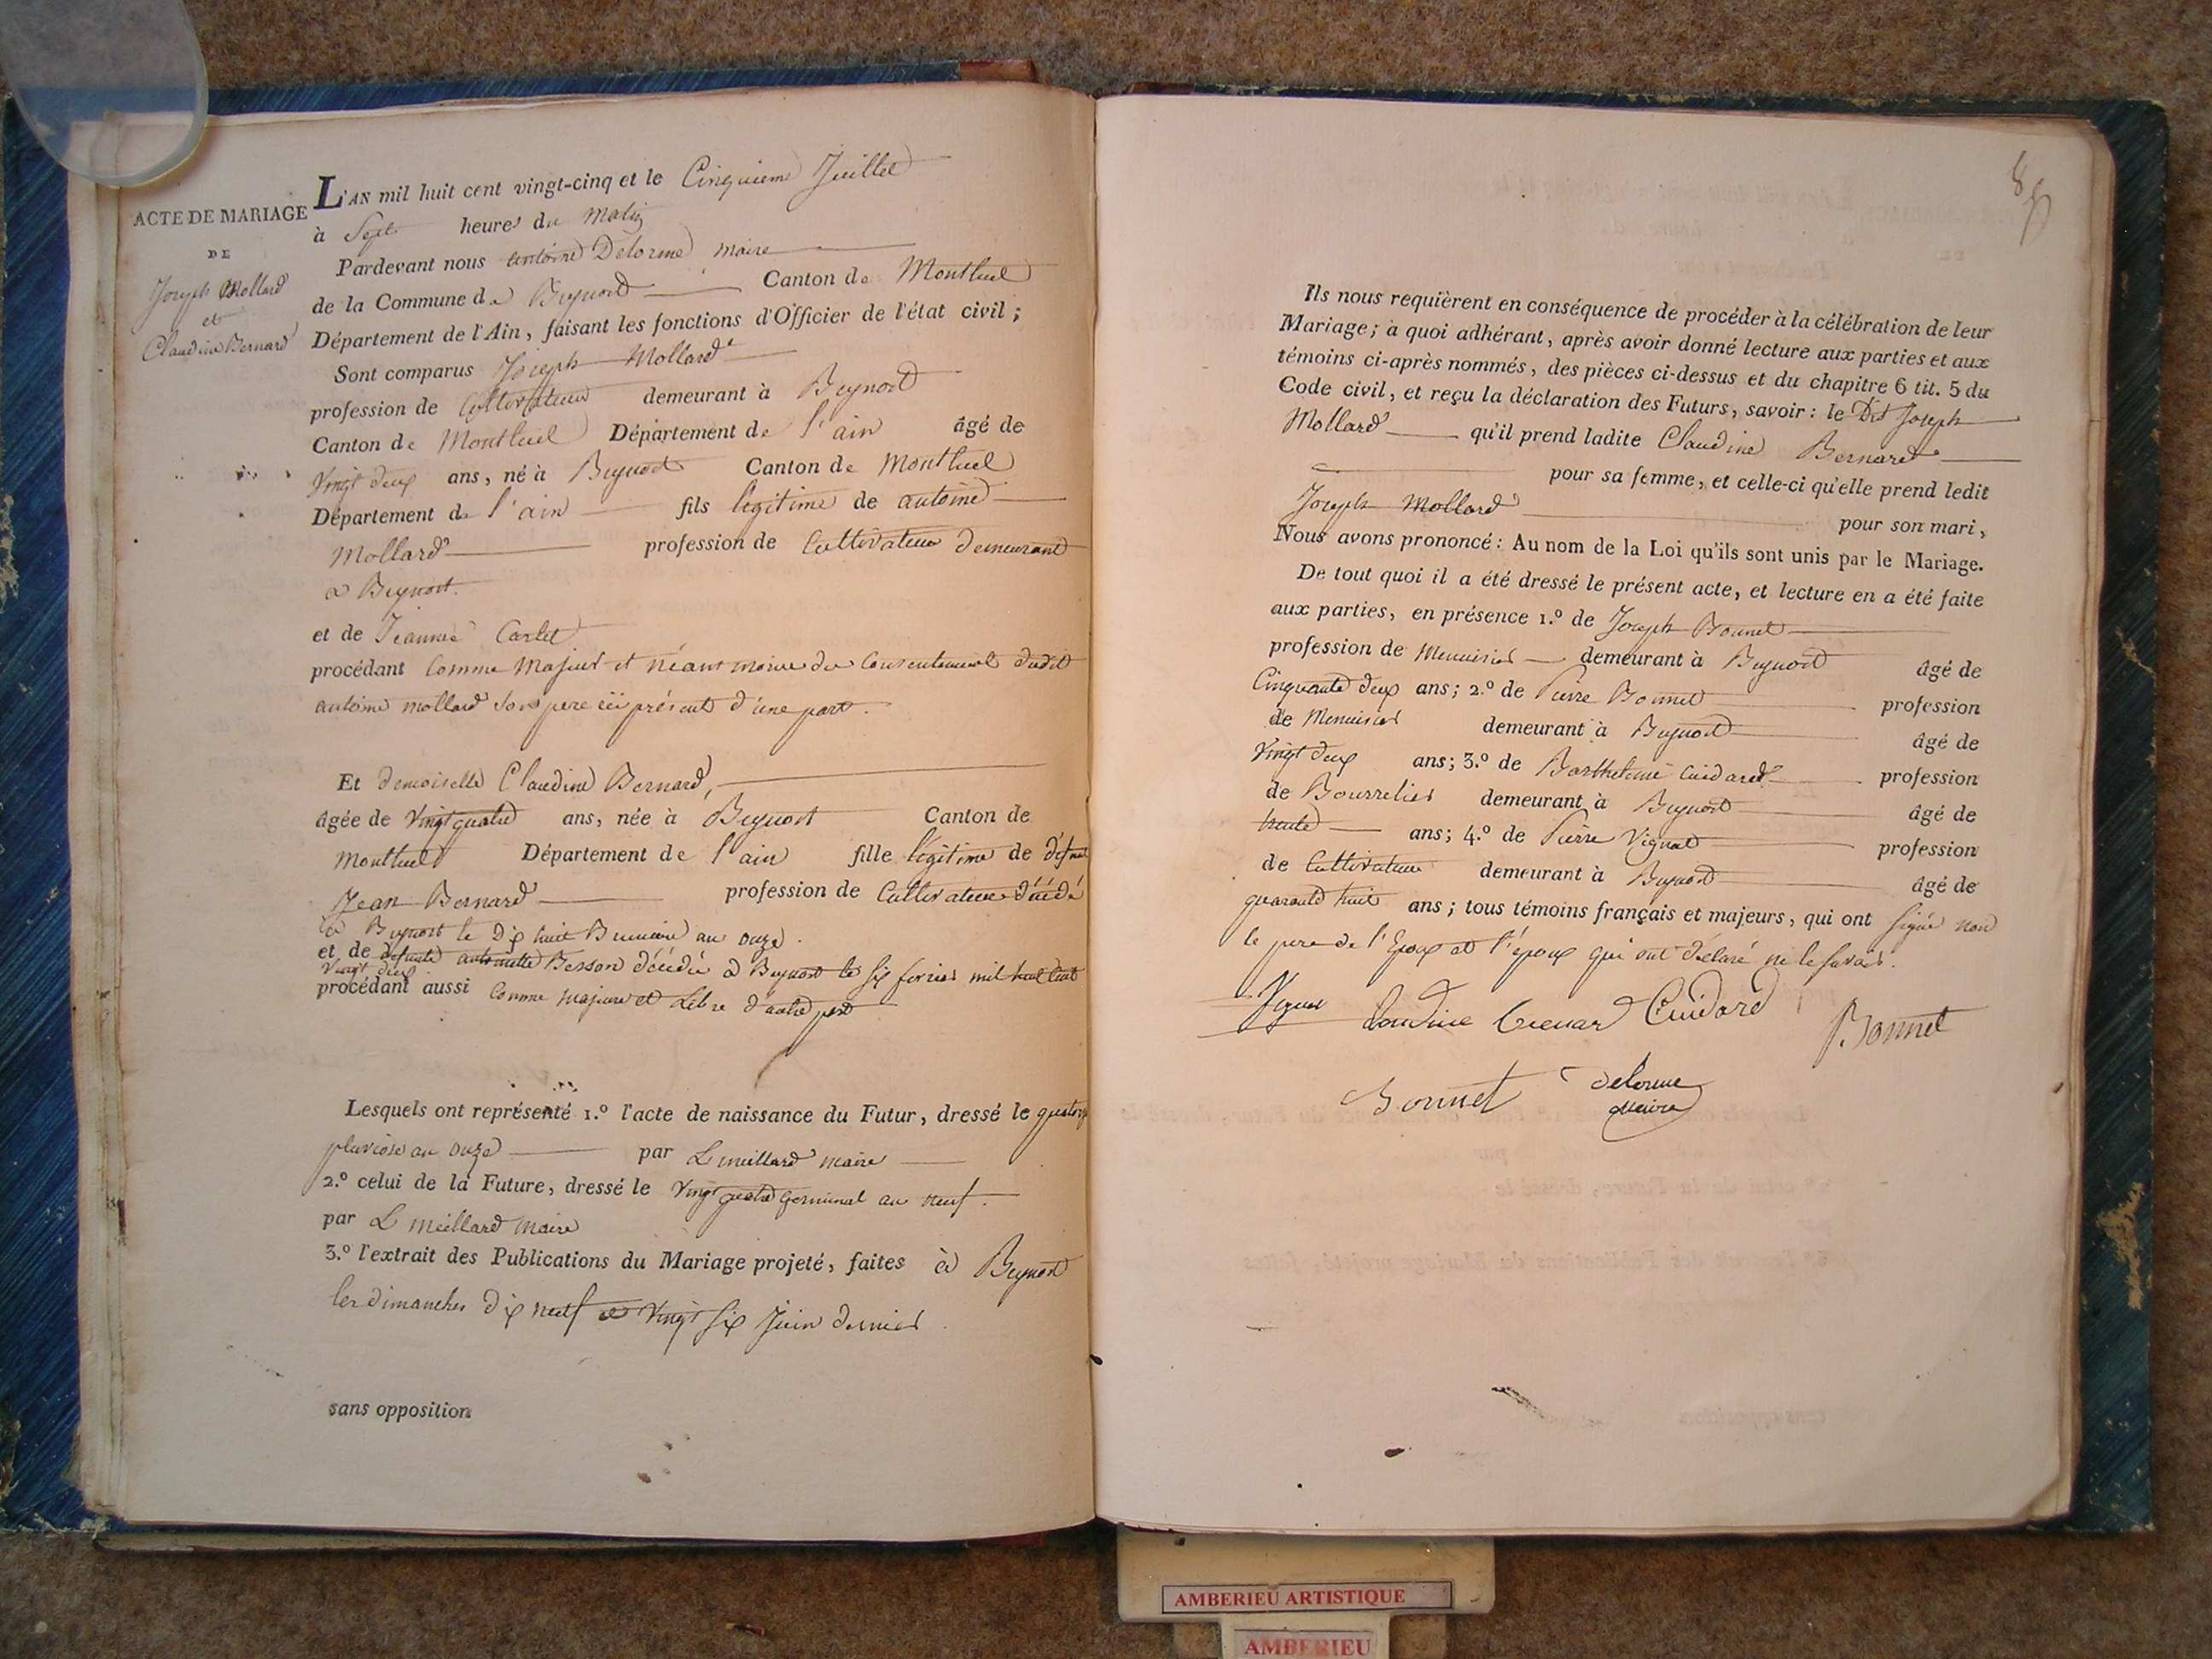 ACTE DE MARIAGE
DE
Joseph Mollard
et
Claudine Bernard
L'AN mil huit cent vingt-cinq et le Cinquieme Juillet
à Sept heures du Matin
Pardevant nous antoine Delorme maire
de la Commune de Beynost Canton de Montluel
Département de l'Ain, faisant les fonctions d'Officier de l'état civil;
Sont comparus Joseph Mollard
profession de Cultivateur demeurant à Beynost
Canton de Montluel Département de l'ain âgé de
Vingt deux ans, né à Beynost Canton de Montluel
Département de l'ain fils legitime de antoine
Mollard profession de Cultivateur demeurant
a Beynost.
et de Jeanne Carlet
procédant Comme Majeur et néant moins du Consentement dudit
antoine mollard son pere ici présent d'une part.
Et demoiselle Claudine Bernard,
âgée de Vingt quatre ans, née à Beynost Canton de
Montluel Département de l'ain fille légitime de défunt
Jean Bernard profession de Cultivateur décédé
a Beynost le Dix huit Brumaire an onze.
et de defunte antoinette Besson décédée a Beynost le six fevrier mil huit Cent
Vingt deux
procédant aussi Comme majeure et Libre d'autre part
Lesquels ont représenté 1.º l'acte de naissance du Futur, dressé le quatorze
pluviose an onze par L meillard maire
2.º celui de la Future, dressé le Vingt quatre germinal an neuf.
par L meillard maire
3.º l'extrait des Publications du Mariage projeté, faites à Beynost
les dimanches dix neuf et Vingt six Juin dernier
sans opposition
Ils nous requièrent en conséquence de procéder à la célébration de leur
Mariage; à quoi adhérant, après avoir donné lecture aux parties et aux
témoins ci-après nommés, des pièces ci-dessus et du chapitre 6 tit. 5 du
Code civil, et reçu la déclaration des Futurs, savoir: le Dit Joseph
Mollard qu'il prend ladite Claudine Bernard
pour sa femme, et celle-ci qu'elle prend ledit
Joseph Mollard pour son mari,
Nous avons prononcé: Au nom de la Loi qu'ils sont unis par le Mariage.
De tout quoi il a été dressé le présent acte, et lecture en a été faite
aux parties, en présence 1.º de Joseph Bonnet
profession de Menuisier demeurant à Beynost âgé de
Cinquante deux ans; 2.º de Pierre Bonnet profession
de Menuisier demeurant à Beynost âgé de
Vingt deux ans; 3.º de Barthelemi Cuidard profession
de Bourrelier demeurant à Beynost âgé de
trente ans; 4.º de Pierre Vignat profession
de Cultivateur demeurant à Beynost âgé de
quarante huit ans; tous témoins français et majeurs, qui ont signé non
le pere de l'Epoux et l'époux qui ont déclaré ne le savoir.
Claudine Cuidard Bonnet
Bonnet delorme
maire
AMBERIEU ARTISTIQUE
AMBERIEU